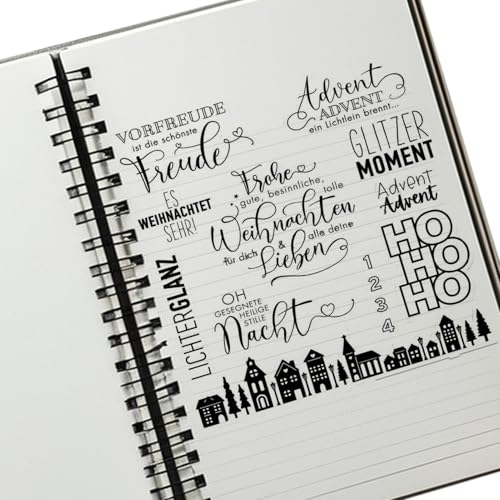 VORFREUDE
ist die schönste
Freude
Advent
ADVENT
ein Lichtlein brennt...
GLITZER
MOMENT
ES
WEIHNACHTET
SEHR!
Frohe
gute, besinnliche, tolle
Weihnachten
für dich & alle deine
Lieben
Advent
Advent
HO
HO
HO
1
2
3
4
LICHTERGLANZ
OH
GESEGNETE
HEILIGE
STILLE
Nacht